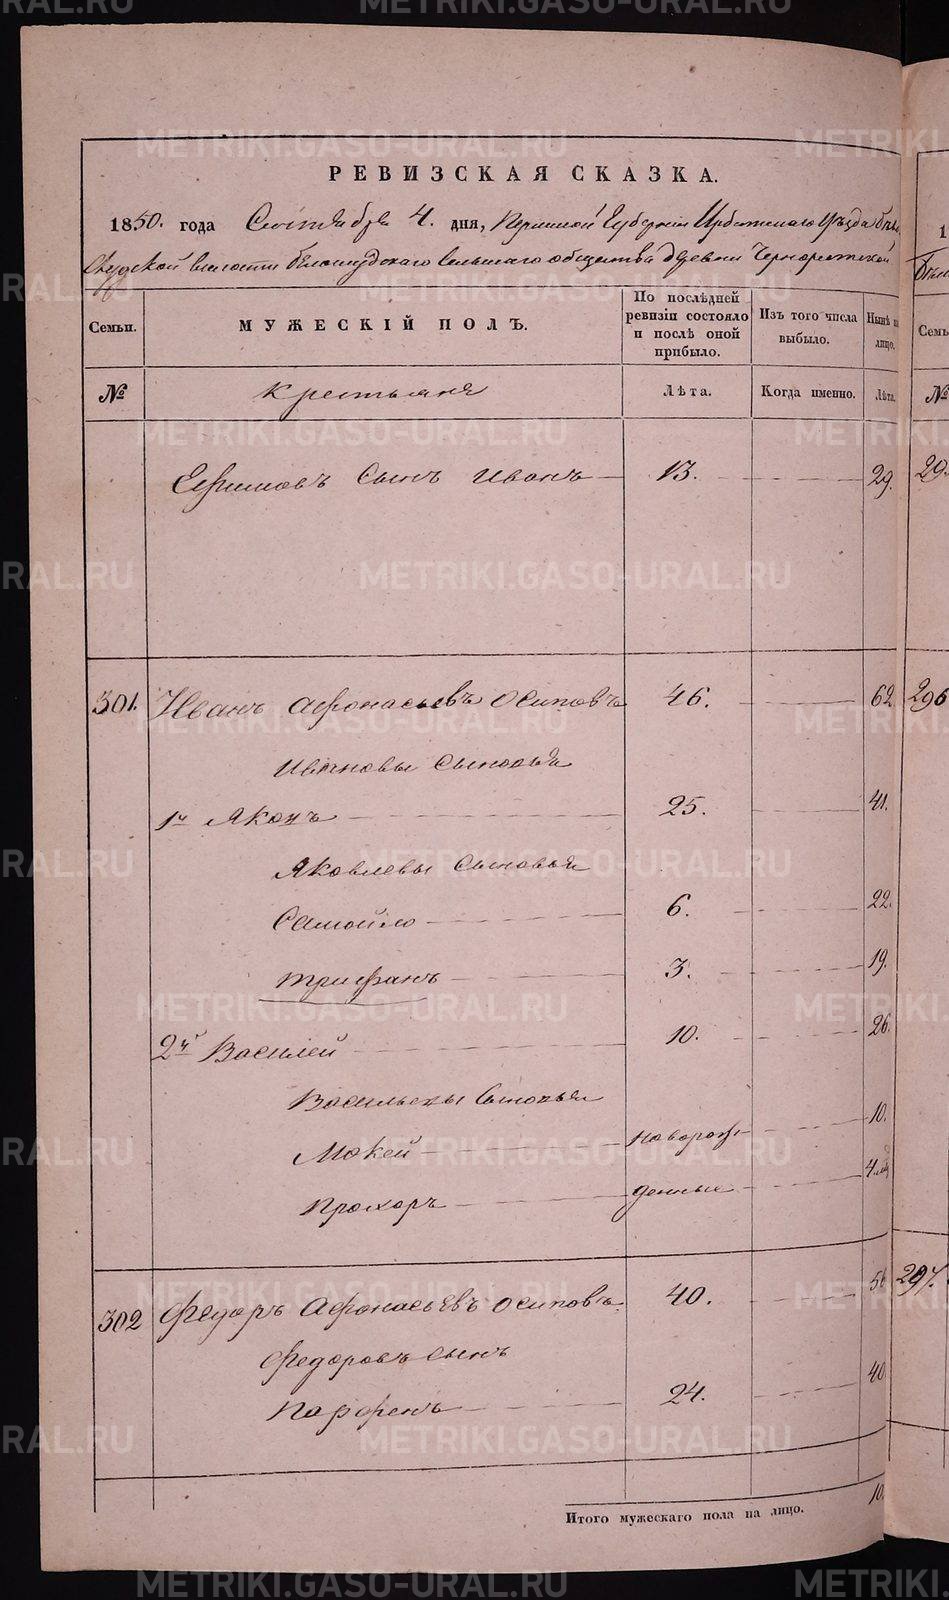 РЕВИЗСКАЯ СКАЗКА.
1850. года Сентября 4. дня, Пермской Губернiи Ирбитскаго Уѣзда Бѣло
слудской волости бѣлослудскаго сельскаго общества деревни
Семьи.
МУЖЕСКIЙ ПОЛЪ.
По послѣдней ревизiи состояло и послѣ оной прибыло.
Изъ того числа выбыло.
Нынѣ на лицо.
№ крестьяне Лѣта. Когда именно. Лѣта.
Ефимовъ Сынъ Иванъ 13. 29.
301. Иванъ Афонасьевъ Осиповъ 46. 62
Ивановы Сыновья
1й Яковъ 25. 41.
Яковлевы Сыновья
Самойло 6. 22.
Трифанъ 3. 19.
2й Василей 10. 26.
Васильевы Сыновья
Мокей новорож- 10.
Прохоръ денные 4.
302 Федоръ Афонасьевъ Осиповъ 40. 56
Федоровъ Сынъ
Парфенъ 24. 40
Итого мужескаго пола на лицо. 10.
1
Семь
№
29.
296
297.
METRIKI.GASO-URAL.RU